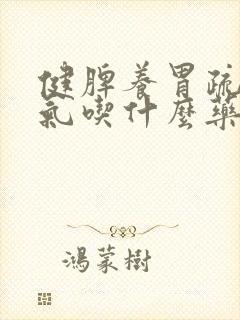 健脾養胃疏
氣喫什麼藥
鴻蒙樹